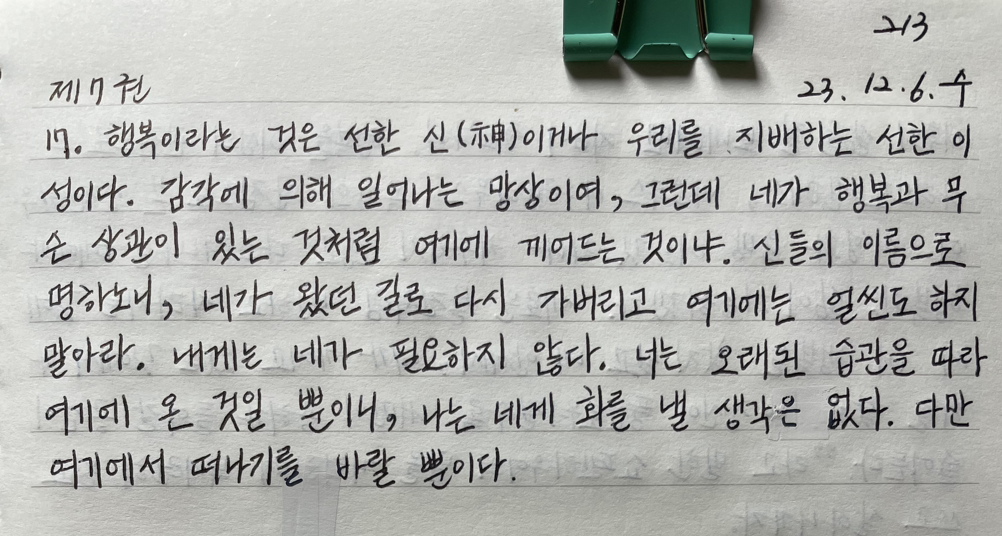 213
제7권 23. 12. 6. 수
17. 행복이라는 것은 선한 신(神)이거나 우리를 지배하는 선한 이
성이다. 감각에 의해 일어나는 망상이여, 그런데 네가 행복과 무
슨 상관이 있는 것처럼 여기에 끼어드는 것이냐. 신들의 이름으로
명하노니, 네가 왔던 길로 다시 가버리고 여기에는 얼씬도 하지
말아라. 내게는 네가 필요하지 않다. 너는 오래된 습관을 따라
여기에 온 것일 뿐이니, 나는 네게 화를 낼 생각은 없다. 다만
여기에서 떠나기를 바랄 뿐이다.